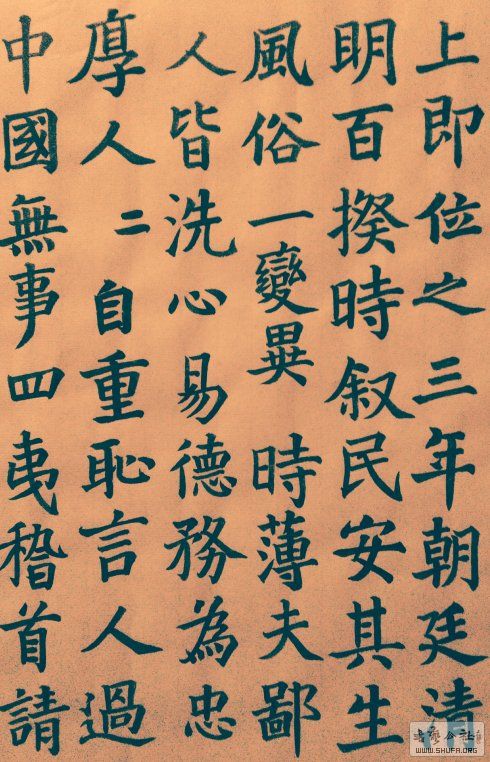 上即位之三年朝廷清
明百揆時叙民安其生
風俗一變異時薄夫鄙
人皆洗心易德務為忠
厚人二自重恥言人過
中國無事四夷稽首請
書藝公社
WWW.SHUFA.ORG